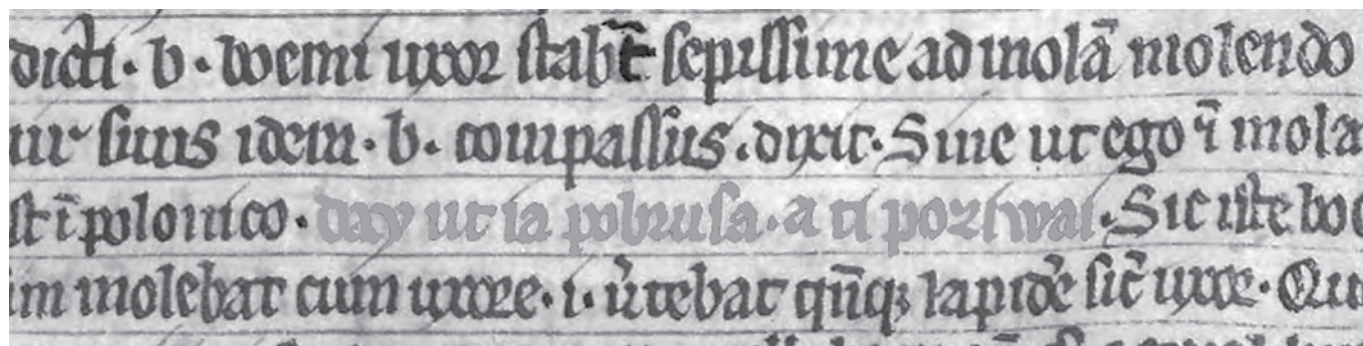 dicti · b · boemi uxor stabāt sepissime ad molā molendo
ur suus idem · b · compassus · dixit · Sine ut ego ī mola
st ī polonico · day ut ia pobrusa · a ti poziwai · Sic iste boe
im molebat cum uxore · i · v̾tebat qn̄q; lapidē sic̄ uxor · Qu